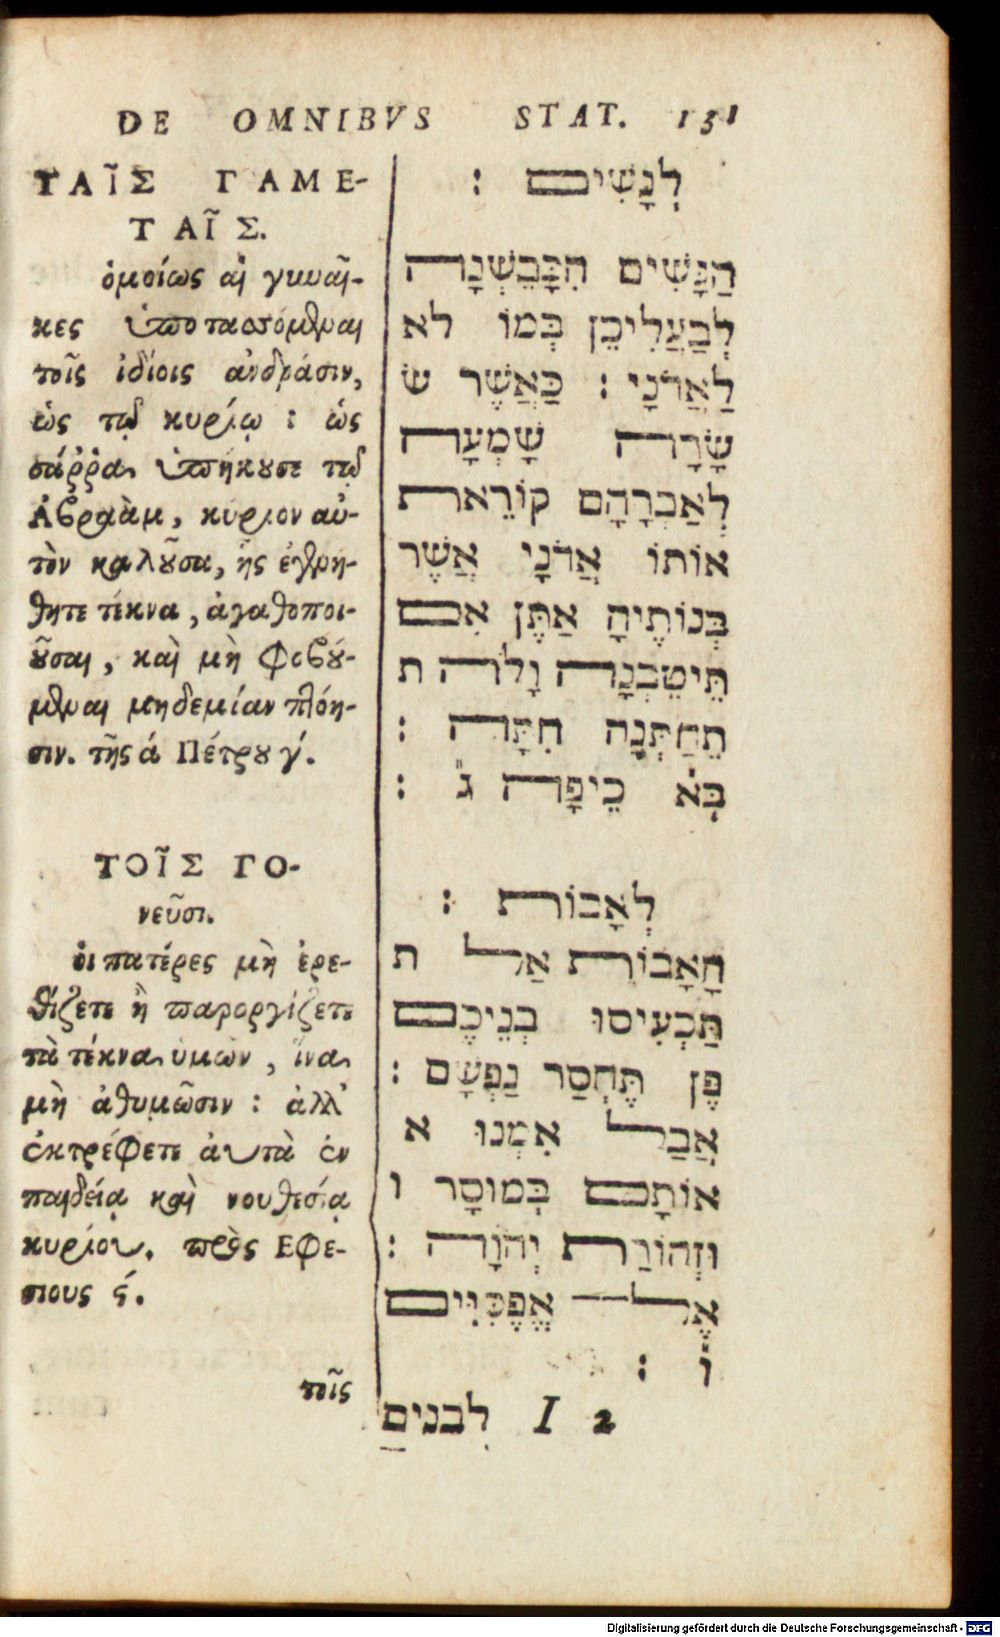 DE OMNIBVS STAT. 131
ΤΑῖΣ ΓΑΜΕ-
ΤΑῖΣ.
ὁμοίως αἱ γυναῖ-
κες ὑποτασσόμεναι
τοῖς ἰδίοις ἀνδράσιν,
ὡς τῷ κυρίῳ : ὡς
σάῤῥα ὑπήκουσε τῷ
Ἀβραὰμ, κύριον αὐ-
τὸν καλοῦσα, ἧς ἐγενή-
θητε τέκνα, ἀγαθοποι-
οῦσαι, καὶ μὴ φοβού-
μεναι μηδεμίαν πτόη-
σιν. τῆς ά Πέτρου γ́.
ΤΟῖΣ ΓΟ-
νεῦσι.
οἱ πατέρες μὴ ἐρε-
θίζετε ἢ παροργίζετε
τὰ τέκνα ὑμῶν, ἵνα
μὴ ἀθυμῶσιν : ἀλλ'
ἐκτρέφετε ἀυτὰ ἐν
παιδείᾳ καὶ νουθεσίᾳ
κυρίου. πρὸς Εφε-
σιους ϛ́.
τοῖς
לְנָשִׁים :
הַנָּשִׁים הִכָּבֵשְׁנָה
לְבַעֲלִיכֵן כְּמוֹ לא
לַאֲדֹנָי : כַּאֲשֶׁר שׁ
שָׂרָה שָׁמְעָה
לְאַבְרָהָם קוֹרֵאת
אוֹתוֹ אֲדֹנָי אֲשֶׁר
בְּנוֹתֶיהָ אַתֶּן אִם
תֵּיטַבְנָה וָלֹה ת
תֵחַתְּנָה חִתָּה :
בְּא כֵיפָה ג :
לְאָבוֹת :
הָאָבוֹת אַל ת
תַּכְעִיסוּ בְּנֵיכֶם
פֶּן תֶּחְסַר נַפְשָׁם :
אֲבַל אִמְנוּ א
אוֹתָם בְּמוּסָר ו
וּזְהוֹרַת יְהֹוָה :
אֶל אֱפֶסִיִּים
וֹ :
I 2 לבנים